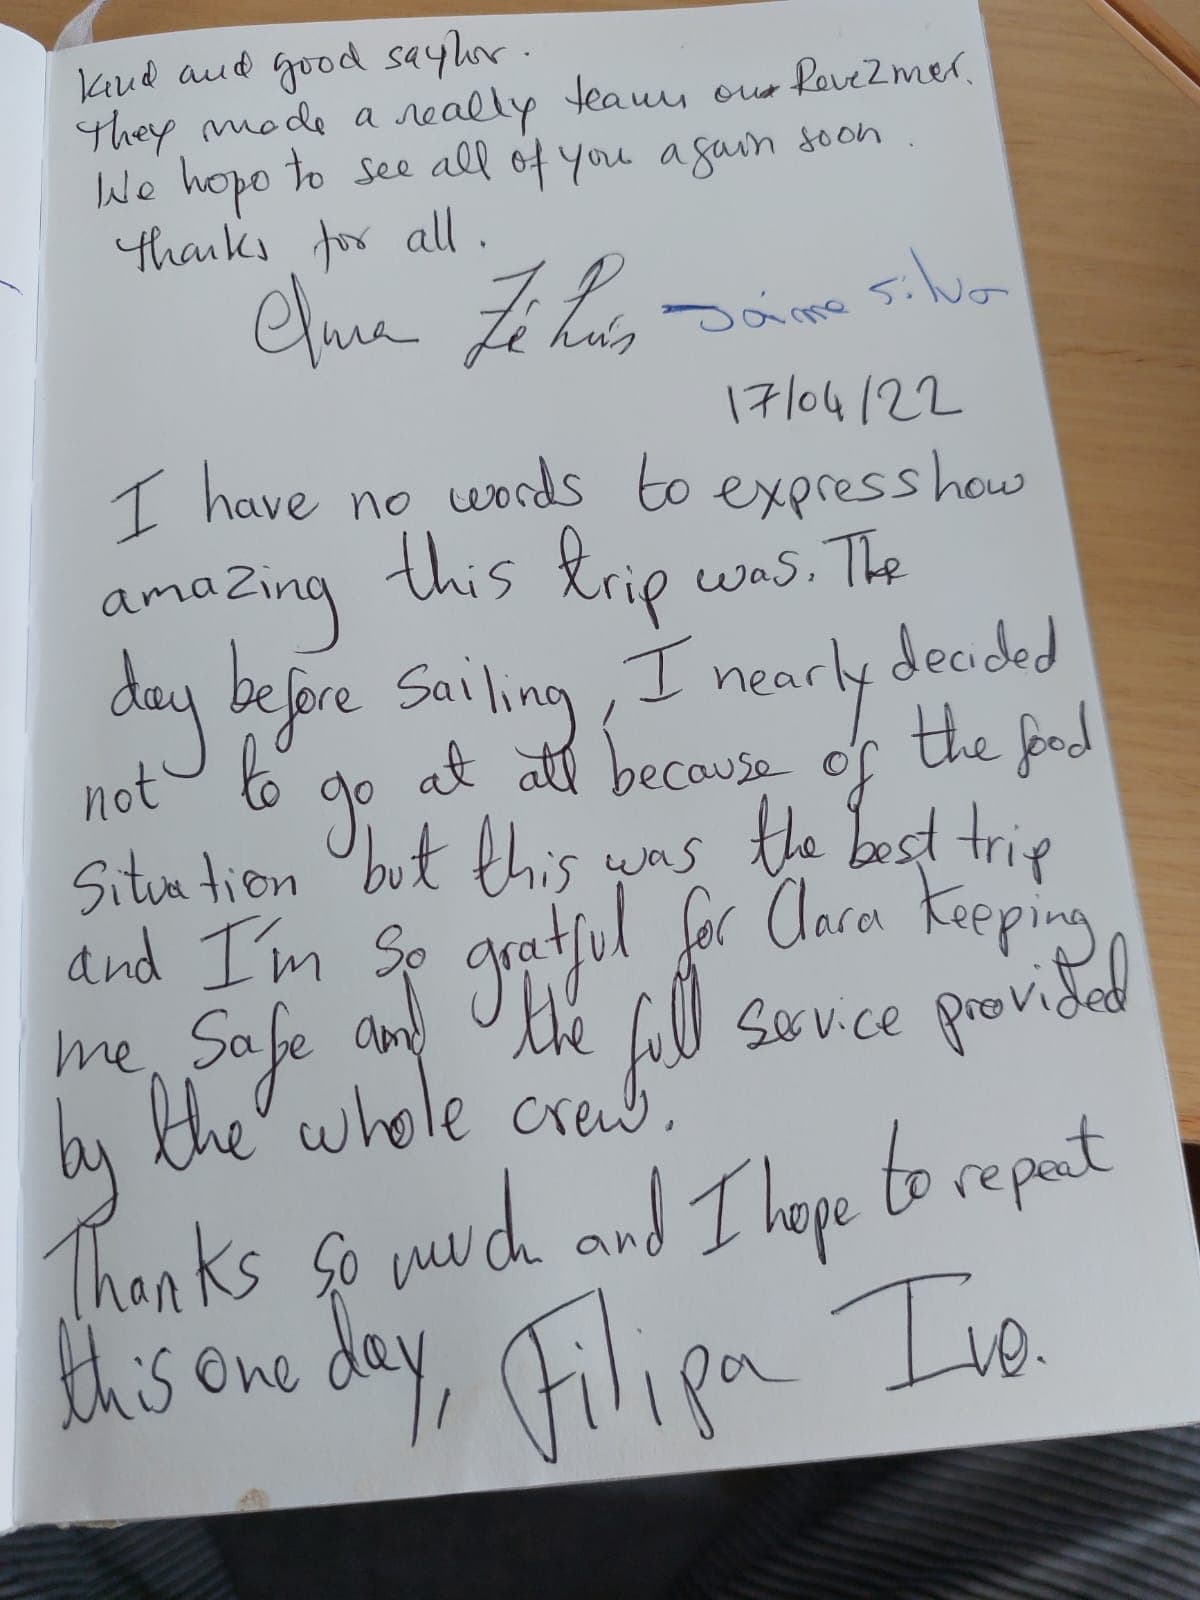 kind and good saylor.
They made a really team our Reve2mer.
We hope to see all of you again soon.
Thanks for all.
Elma Zé Luís Jaime Silva
17/04/22
I have no words to express how
amazing this trip was. The
day before sailing, I nearly decided
not to go at all because of the food
situation but this was the best trip
and I'm so gratful for Clara keeping
me safe and the full service provided
by the whole crew.
Thanks so much and I hope to repeat
this one day, Filipa Ivo.